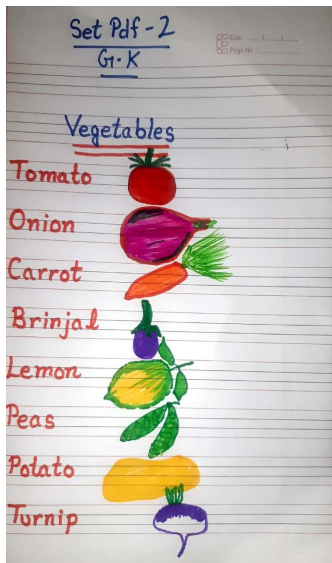 Set Pdf-2
G.K
Date: / /
Page No.:
Vegetables
Tomato
Onion
Carrot
Brinjal
Lemon
Peas
Potato
Turnip